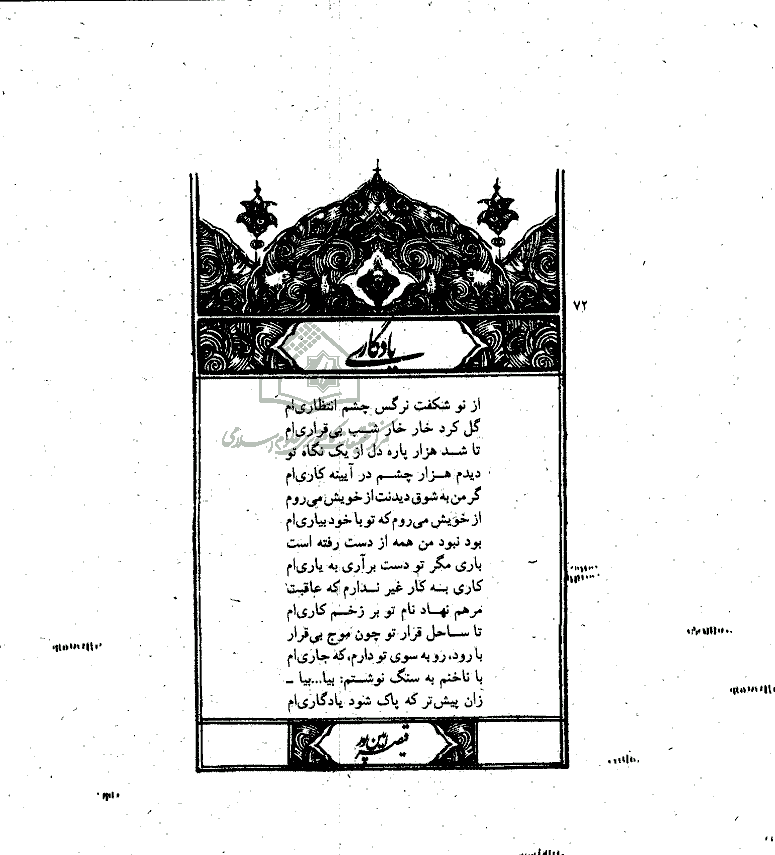 ۷۲
یادگاری
از نو شکفت نرگس چشم انتظاری‌ام
گل کرد خار خار شب بی‌قراری‌ام
تا شد هزار پاره دل از یک نگاه تو
دیدم هزار چشم در آیینه کاری‌ام
گر من به شوق دیدنت از خویش می‌روم
از خویش می‌روم که تو با خود بیاری‌ام
بود نبود من همه از دست رفته است
باری مگر تو دست برآری به یاری‌ام
کاری به کار غیر ندارم که عاقبت
مرهم نهاد نام تو بر زخم کاری‌ام
تا ساحل قرار تو چون موج بی‌قرار
با رود، رو به سوی تو دارم، که جاری‌ام
با ناخنم به سنگ نوشتم: بیا...بیا ـ
زان پیش‌تر که پاک شود یادگاری‌ام
قیصر امین پور